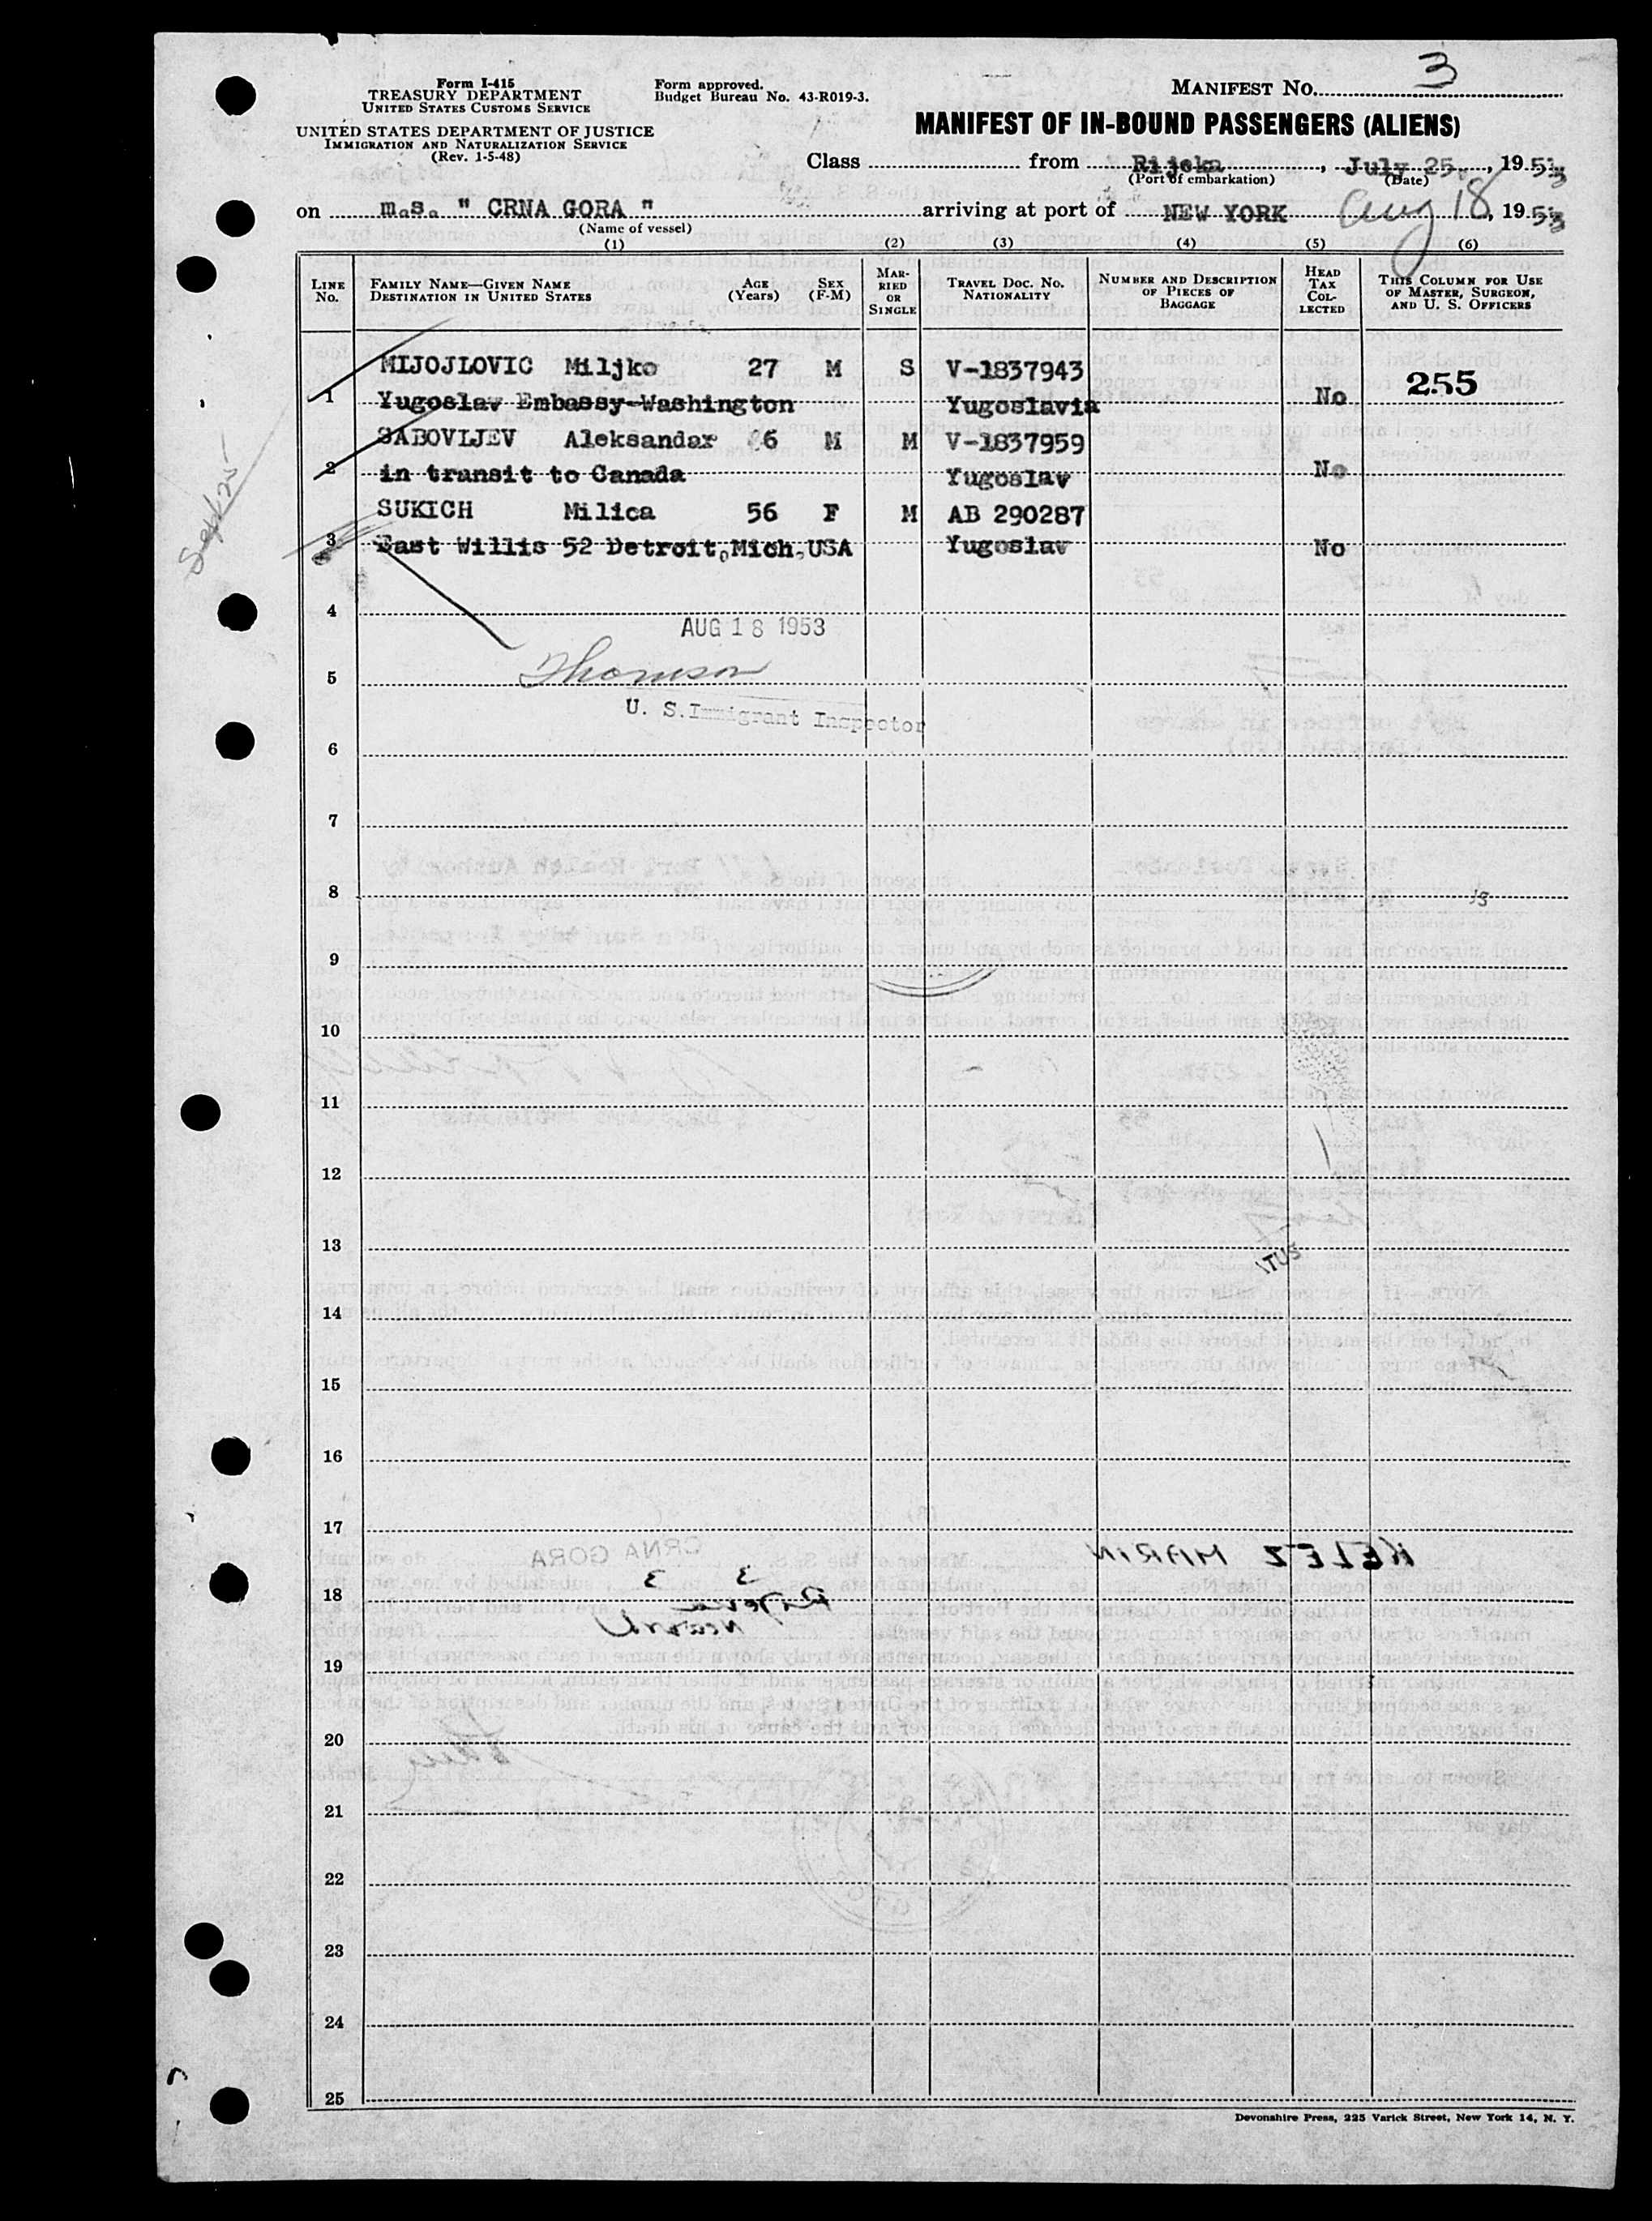 Form I-415
TREASURY DEPARTMENT
UNITED STATES CUSTOMS SERVICE
UNITED STATES DEPARTMENT OF JUSTICE
IMMIGRATION AND NATURALIZATION SERVICE
(Rev. 1-5-48)
Form approved.
Budget Bureau No. 43-R019-3.
MANIFEST NO. 3
MANIFEST OF IN-BOUND PASSENGERS (ALIENS)
Class from Rijeka, July 25, 1953
(Port of embarkation) (Date)
on m.s. " CRNA GORA " arriving at port of NEW YORK Aug 18, 1953
(Name of vessel)
(1) (2) (3) (4) (5) (6)
LINE NO.
FAMILY NAME—GIVEN NAME
DESTINATION IN UNITED STATES
AGE (Years)
SEX (F-M)
MARRIED OR SINGLE
TRAVEL DOC. NO. NATIONALITY
NUMBER AND DESCRIPTION OF PIECES OF BAGGAGE
HEAD TAX COLLECTED
THIS COLUMN FOR USE OF MASTER, SURGEON, AND U. S. OFFICERS
MIJOJLOVIC Miljko 27 M S V-1837943 255
1 Yugoslav Embassy-Washington Yugoslavia No
SABOVLJEV Aleksandar 6 M M V-1837959
2 in transit to Canada Yugoslav No
SUKICH Milica 56 F M AB 290287
3 East Willis 52 Detroit, Mich, USA Yugoslav No
4
AUG 18 1953
Thomson
5
U. S. Immigrant Inspector
6
7
8
9
10
11
12
13
14
15
16
17
KELEZ MARIN
CRNA GORA
3 3
18
Rijeka
Newark
19
20
21
22
23
24
25
Devonshire Press, 225 Varick Street, New York 14, N. Y.